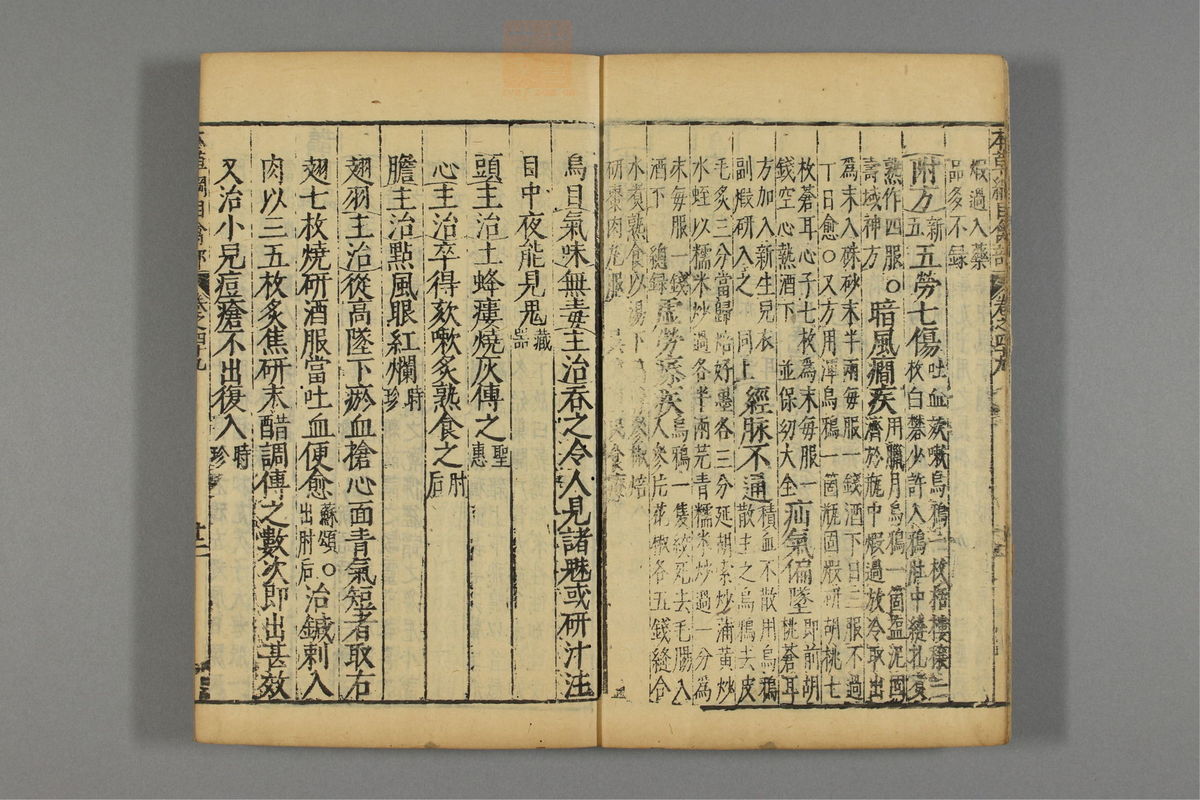 煆過入藥
品多不録
附方新五五勞七傷吐血欬嗽烏鴉一枚栝樓穰一枚白礬少許入鴉肚中縫扎煑
熟作四服
壽域神方○暗風癇疾用臘月烏鴉一箇鹽泥固濟於瓶中煆過放冷取出
爲末入硃砂末半兩每服一錢酒下日三服不過
丁日愈○又方用渾烏鴉一箇瓶固煆研胡桃七
枚蒼耳心子七枚爲末每服一
錢空心熱酒下 並保幼大全疝氣偏墜即前胡桃蒼耳
方加入新生兒衣
副煆研入之 同上經脉不通積血不散用烏鴉散主之烏鴉去皮
毛炙三分當歸焙好墨各三分延胡索炒蒲黄炒
水蛭以糯米炒過各半兩芫青糯米炒過一分爲
末每服一錢
酒下 總録虛勞瘵疾烏鴉一隻絞死去毛腸入人參片花椒各五錢縫合
水煑熟食以湯下
研棗肉丸服
烏目氣味無毒主治吞之令人見諸魅或研汁注
目中夜能見鬼藏器
頭主治土蜂瘻燒灰傅之聖惠
心主治卒得欬嗽炙熟食之肘后
膽主治點風眼紅爛時珍
翅羽主治從高墜下瘀血搶心面青氣短者取右
翅七枚燒研酒服當吐血便愈蘇頌出肘后○治鍼刺入
肉以三五枚炙焦研末醋調傅之數次即出甚效
又治小兒痘瘡不出復入時珍